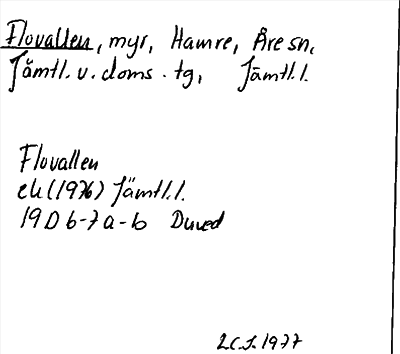 Flovallen, myr, Hamre, Åre sn,
Jämtl. v. doms. tg, Jämtl. l.
Flovallen
ek (1976) Jämtl. l.
19D 6-7 a-b Duved
L.C.J. 1977